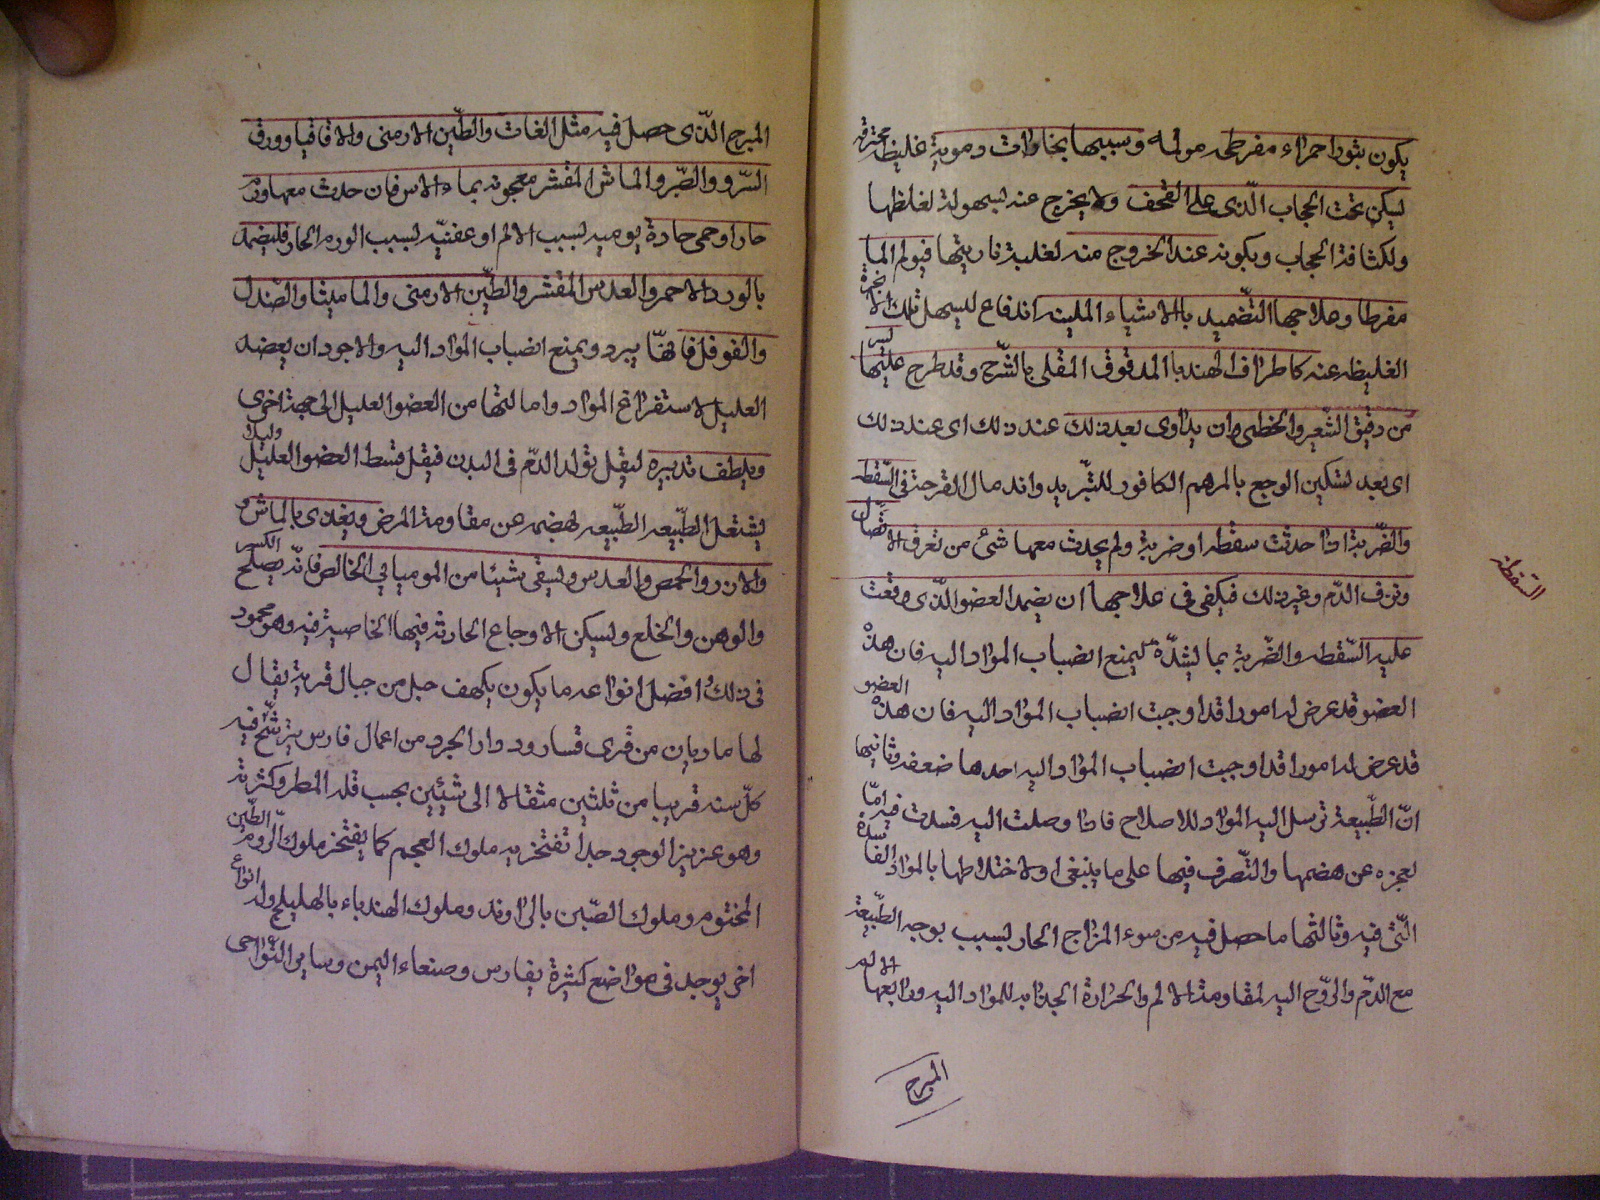 يكون بثورا حمراء مفرطحه مولمه وسببها بخارات دمویة غليظه محترقه
ليكن تحت الحجاب الّذى على القحف ولا يخرج عنه بسهولة لغلظها
ولكثافة الحجاب ويكون عند الخروج منه لغلبة ناريتها فيولم الما
مفرطا وعلاجها التّضميد بالاشياء الملينه اندفاع ليسهل تلك الابخرة
الغليظه عنه كاطراف الهندبا المدقوق المقلى بالشّرج وقد طرح عليها يسير
من دقيق الشّعير والخطمى وان يداوى بعد ذلك عند ذلك اى عند ذلك
اى بعد تسكين الوجع بالمرهم الكافور للتّبريد واندمال القرحة فى السّقطه
والضّربة اذا حدثت سقطه او ضربة ولم يحدث معها شئ من تفرق الاتّصال
ونزف الدّم وغير ذلك فيكفى فى علاجها ان يضمد العضو الّذى وقعت
عليه السّقطه والضّربة بما يشدّه ليمنع انصباب الموٓاد اليه فان هذه
العضو قد عرض له امورا قد اوجبت انصباب الموٓاد اليه فان هذه العضو
قد عرض له امورا قد اوجبت انصباب الموٓاد اليه احدها ضعفه وثانيها
انّ الطّبيعة ترسل اليه الموٓاد للاصلاح فاذا وصلت اليه فسدت فيه امّا
لعجزه عن هضمها والتّصرف فيها على ما ينبغى او لاختلاطها بالموٓاد الفاسدة
الّتى فيه وثالثها ما حصل فيه من سوء المزاج الحار بسبب توجه الطّبيعة
مع الدّم والرّوح اليه لمقاومة الالم والحرارة الجذابه للموٓاد اليه ورابعها الالم
المبرح
السّقطه
المبرح الّذى حصل فيه مثل الغاث والطّين الارمنى والاقاقيا وورق
السّرو والصّبر والماش المقشر معجونه بماء الاس فان حدث معها ورم
حار او حمى حادة يوميه بسبب الالم او عفنيّه بسبب الورم الحار فليضمد
بالورد الاحمر والعدس المقشر والطّين الارمنى والماميثا والصّندل
والفوفل فانهّا يبرد ويمنع انصباب الموٓاد اليه والاجود ان يعضه
العليل لاستفراغ الموٓاد وامالتها من العضو العليل الى جهة اخرى
ويلطف تدبيره ليقل تولد الدّم فى البدن فيقل قسط العضو العليل ولئلا
يشتغل الطّبيعه الطّبيعه لهضمه عن مقاومة المرض ويغذى بالماش و
والارز والحمص والعدس ويسقى شيئا من المومياي الخالص فانّه يصلح الكسر
والوهن والخلع ويسكن الاوجاع الحادثه فيها الخاصية فيه وهو محمود
فى ذلك افضل انواعه ما يكون بكهف جبل من جبال قرية يقال
لها ماديان من قرى قسارود دار الجرد من اعمال فارس يترشّح فيه
كلّ سنه قريبا من ثلثين مثقالا الى شيئين بحسب قلة المطر وكثرته
وهو عزيز الوجود جدا تفتخر به ملوك العجم كما يفتخر ملوك الرّوم الطّين
المختوم وملوك الصّين بالراوند وملوك الهندباء بالهليلج وله انواع
اخر يوجد فى مواضع كثيرة بفارس وصنعاء اليمن وساير النّواحى